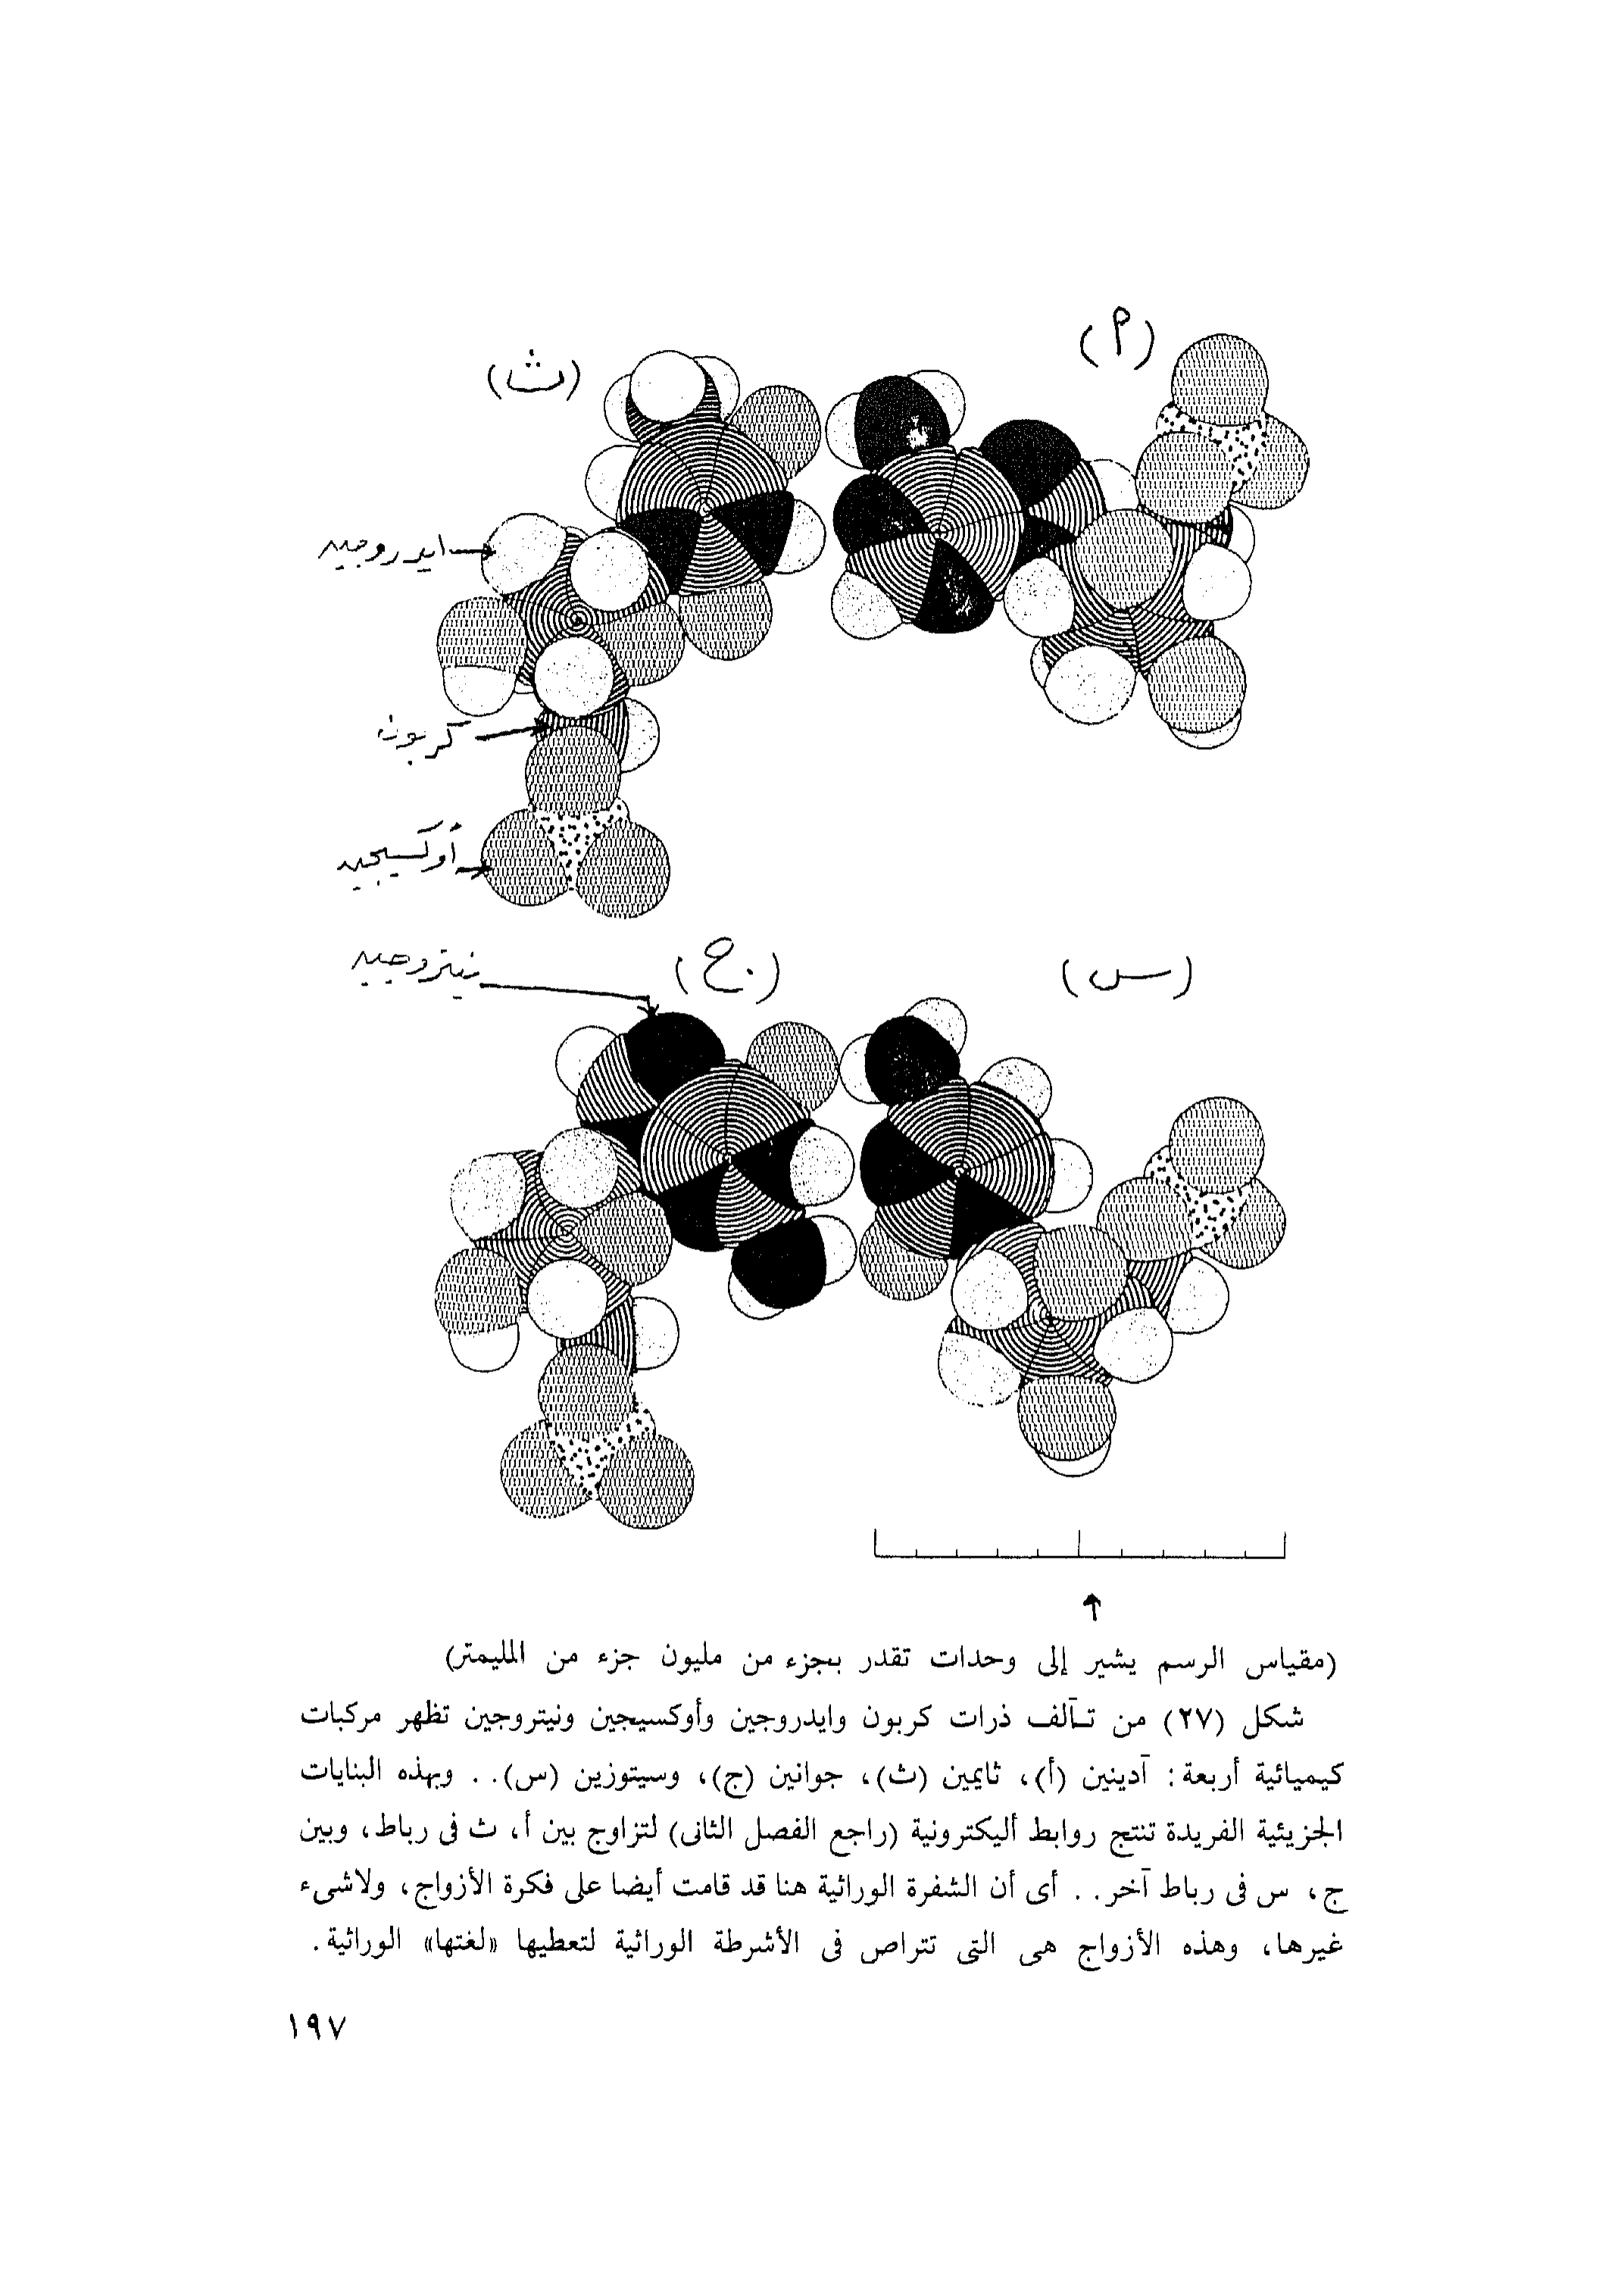 (أ)
(ث)
ايدروجين
كربون
أوكسيجين
نيتروجين
(ج)
(س)
(مقياس الرسم يشير إلى وحدات تقدر بجزء من مليون جزء من المليمتر)
شكل (٢٧) من تآلف ذرات كربون وايدروجين وأوكسيجين ونيتروجين تظهر مركبات
كيميائية أربعة : آدينين (أ)، ثايمين (ث)، جوانين (ج)، وسيتوزين (س) . . وبهذه البنايات
الجزيئية الفريدة تنتج روابط أليكترونية (راجع الفصل الثانى) لتزاوج بين أ، ث فى رباط، وبين
ج، س فى رباط آخر . . أى أن الشفرة الوراثية هنا قد قامت أيضا على فكرة الأزواج، ولاشىء
غيرها، وهذه الأزواج هى التى تتراص فى الأشرطة الوراثية لتعطيها «لغتها» الوراثية .
١٩٧